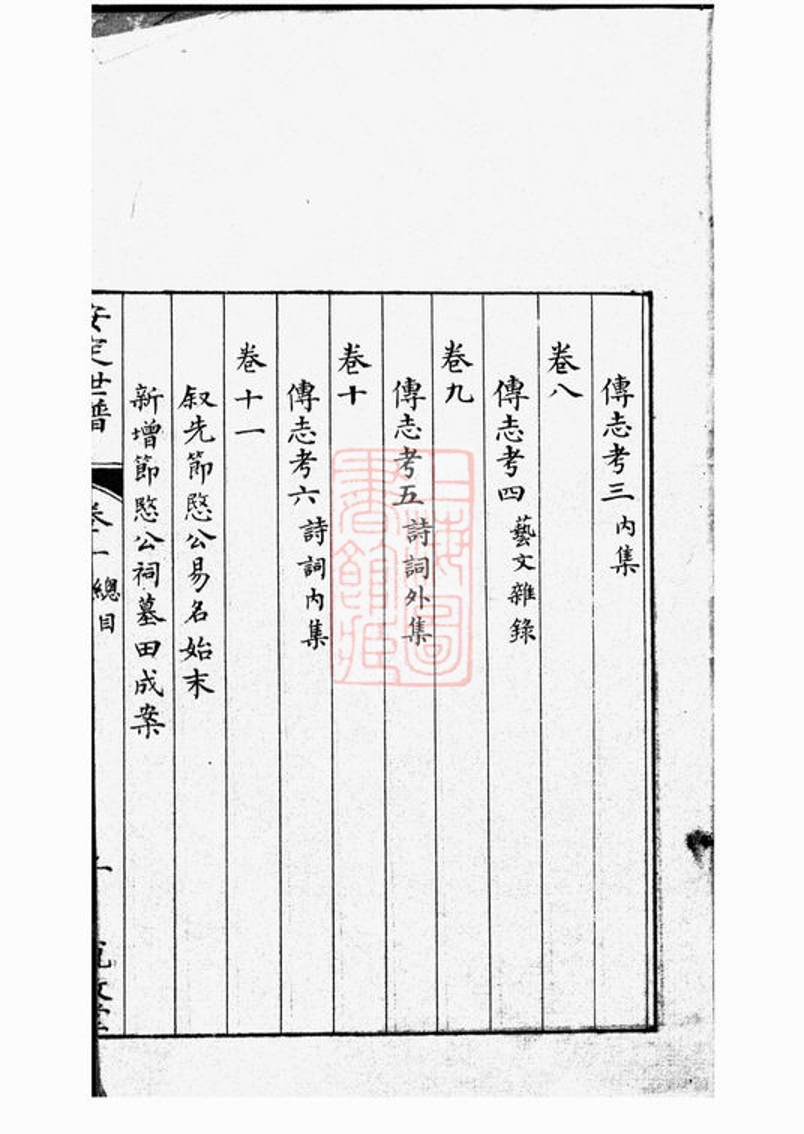 傳志考三 内集
卷八
傳志考四 藝文雜錄
卷九
傳志考五 詩詞外集
卷十
傳志考六 詩詞内集
卷十一
叙先節愍公易名始末
新增節愍公祠墓田成案
安定世譜 卷一 總目
上海圖書館藏